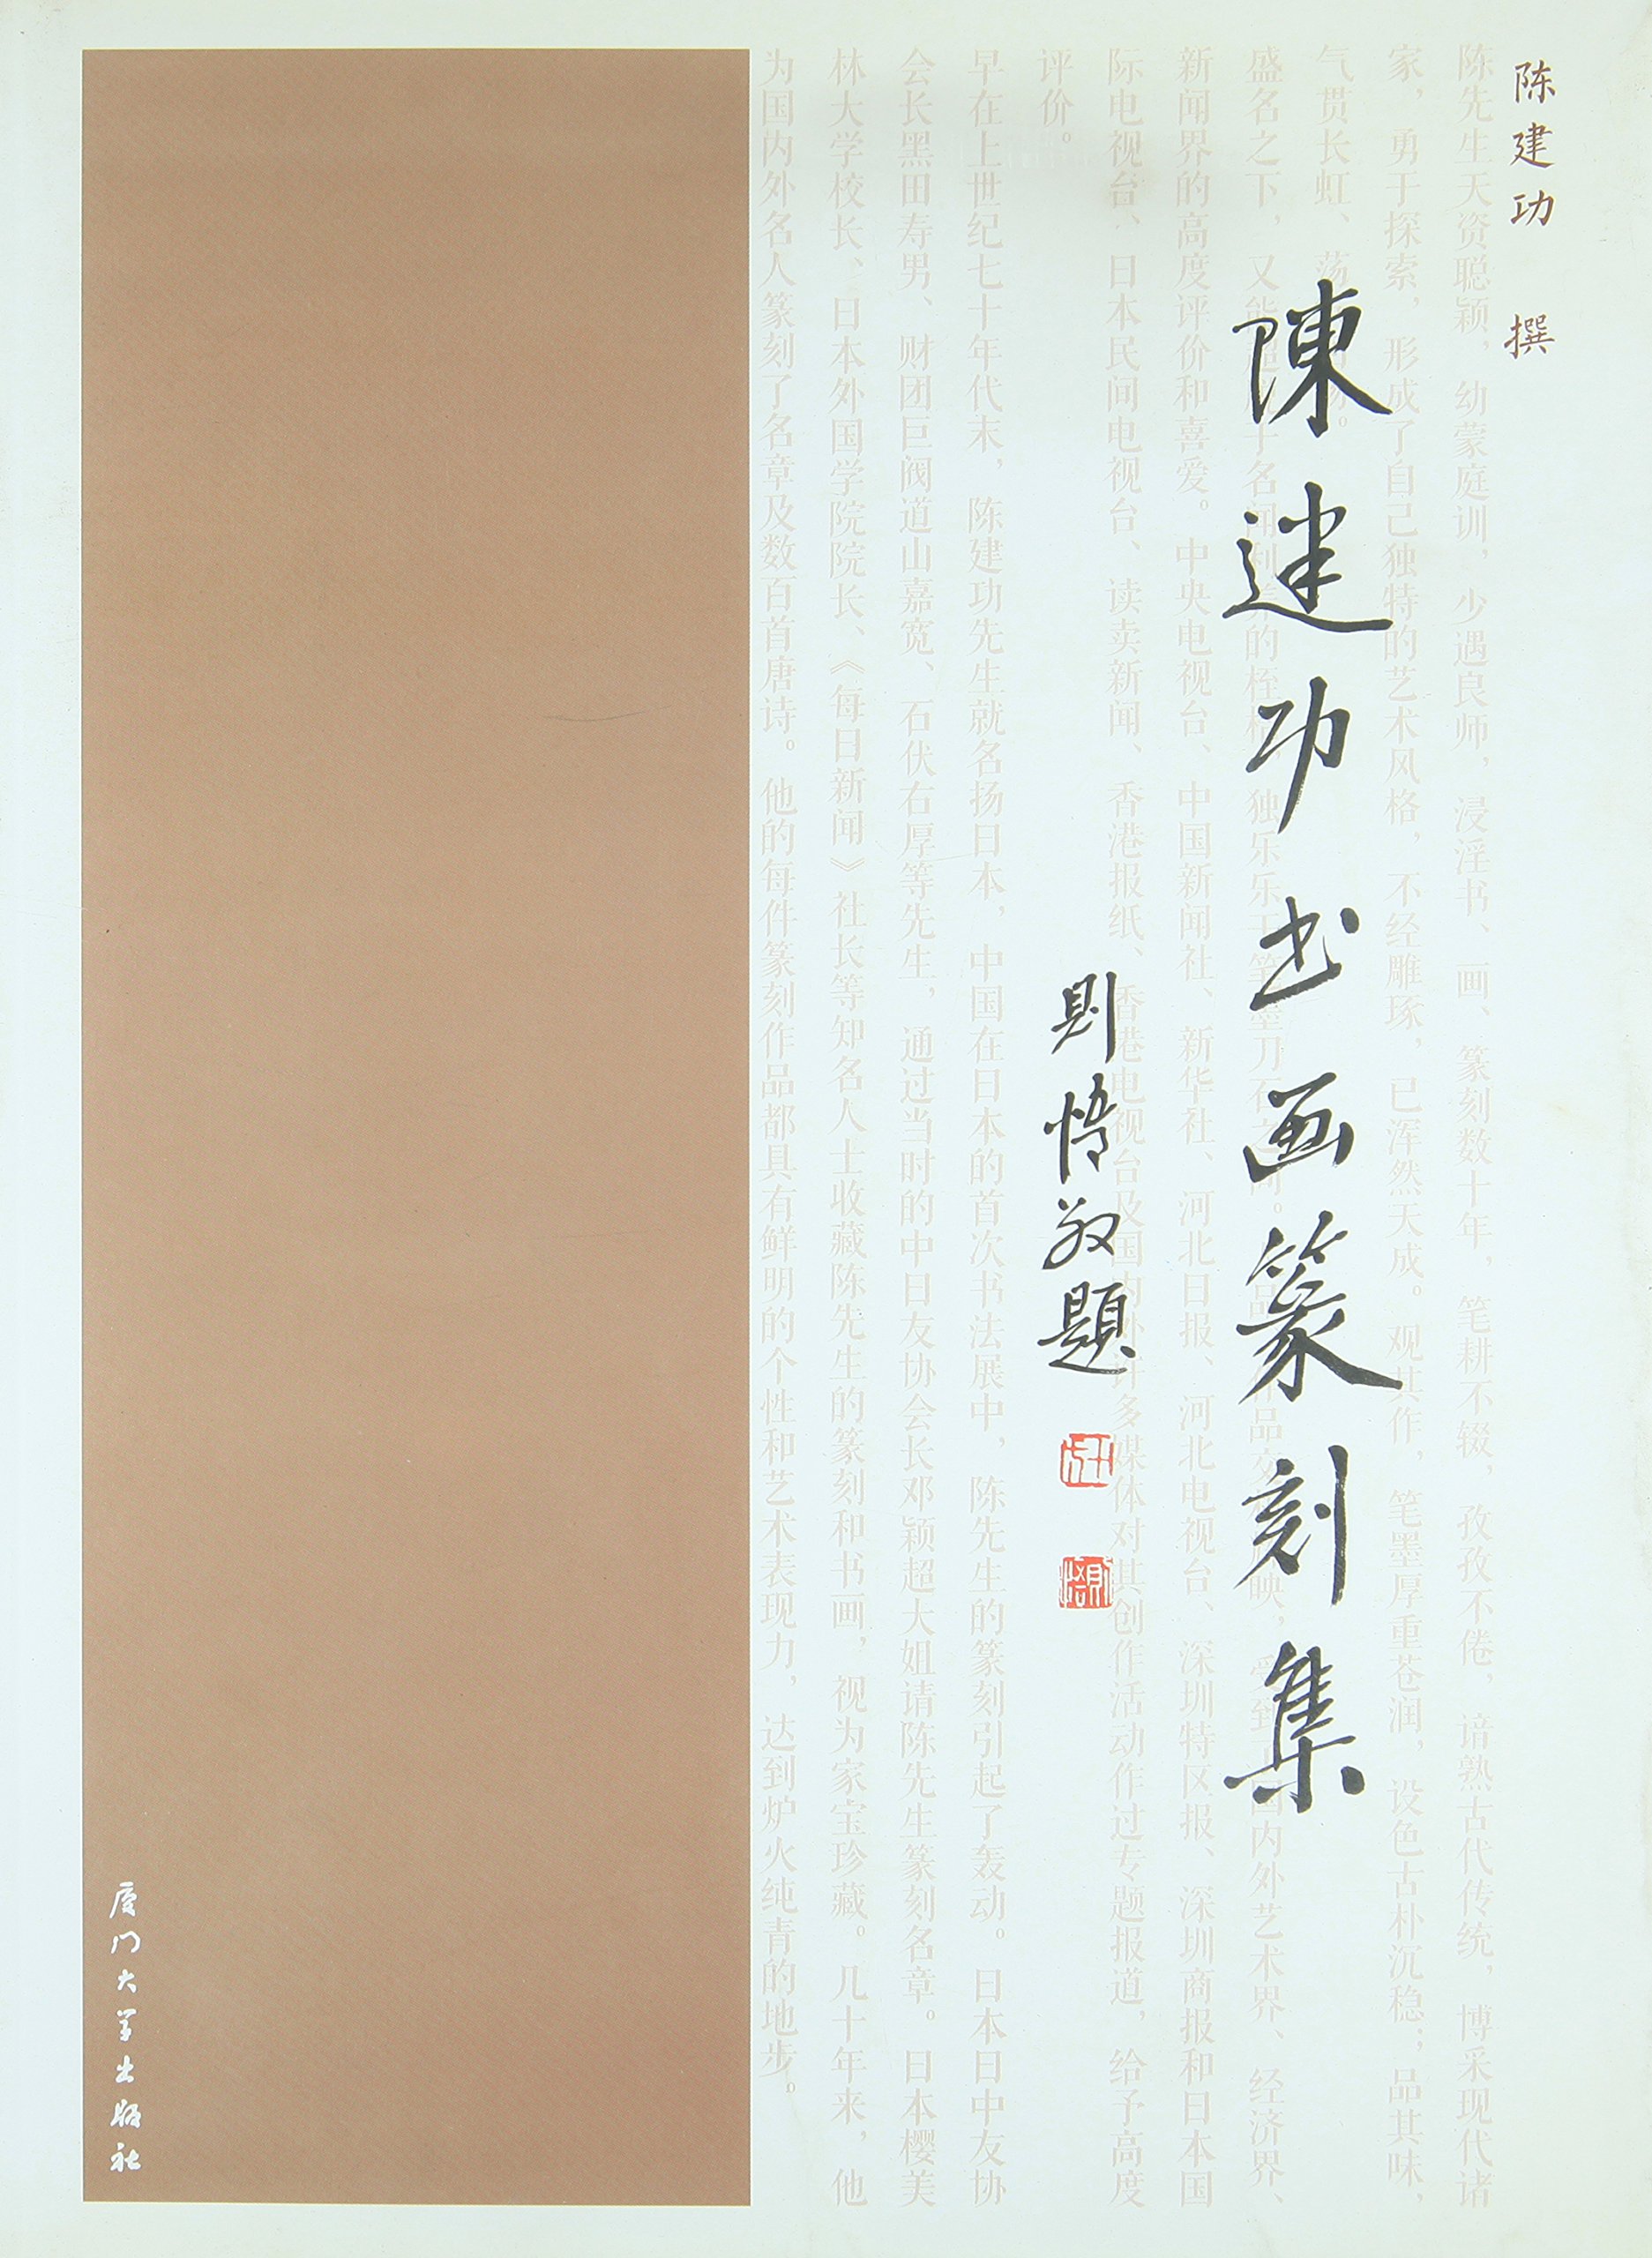 陈建功 撰
陳建功书画篆刻集
則悟敬題
陈先生天资聪颖，幼蒙庭训，少遇良师，浸淫书、画、篆刻数十年，笔耕不辍，孜孜不倦，谙熟古代传统，博采现代诸
家，勇于探索，形成了自己独特的艺术风格，不经雕琢，已浑然天成。观其作，笔墨厚重苍润，设色古朴沉稳；品其味，
气贯长虹、荡
盛名之下，又能超名闻利的桎独乐乐于笔墨刀石品国内外艺术界、经济界、
新闻界的高度评价和喜爱。中央电视台、中国新闻社、新华社、河北日报、河北电视台、深圳特区报、深圳商报和日本国
际电视台、日本民间电视台、读卖新闻、香港报纸、香港电视台及国内外许多媒体对其创作活动作过专题报道，给予高度
评价。
早在上世纪七十年代末，陈建功先生就名扬日本，中国在日本的首次书法展中，陈先生的篆刻引起了轰动。日本日中友协
会长黑田寿男、财团巨阀道山嘉宽、石伏右厚等先生，通过当时的中日友协会长邓颖超大姐请陈先生篆刻名章。日本樱美
林大学校长、日本外国学院院长、《每日新闻》社长等知名人士收藏陈先生的篆刻和书画，视为家宝珍藏。几十年来，他
为国内外名人篆刻了名章及数百首唐诗。他的每件篆刻作品都具有鲜明的个性和艺术表现力，达到炉火纯青的地步。
則悟
厦门大学出版社